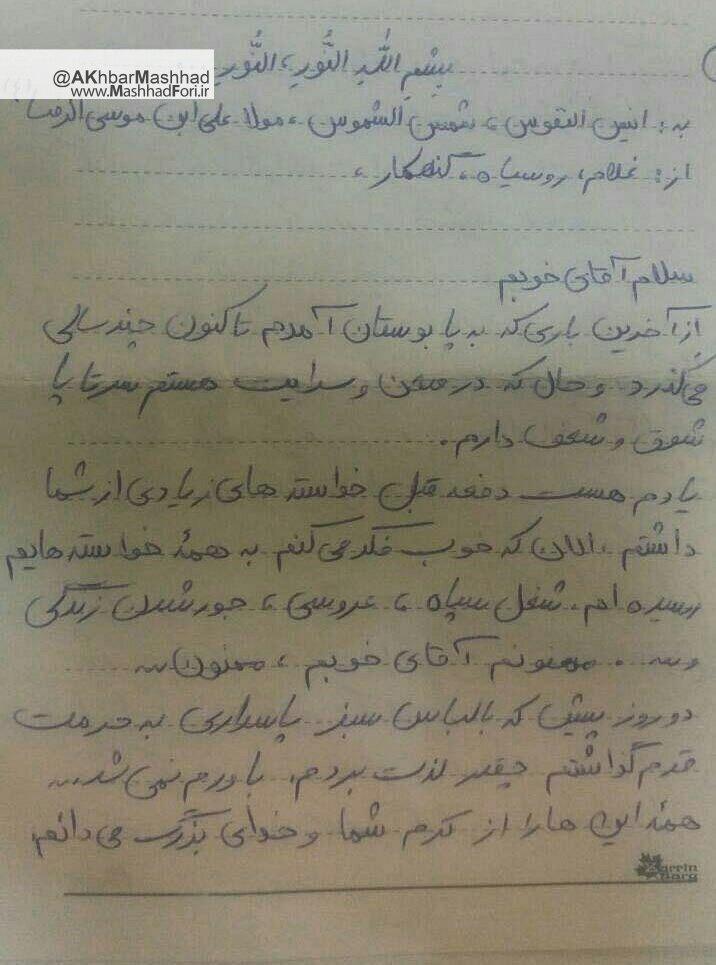 @AKhbarMashhad
www.MashhadFori.ir
بِسْمِ اللّٰهِ النُّور، النُّور
به: انیس النفوس، شمس الشموس، مولا علی ابن موسی الرضا
از: غلام، روسیاه، گنهکار،
سلام آقای خوبم
از آخرین باری که به پابوستان آمدم تاکنون چند سالی
می‌گذرد. و حال که در صحن و سرایت هستم سرتاپا
شوق و شعف دارم.
یادم هست دفعه قبل خواسته های زیادی از شما
داشتم. الان که خوب فکر می کنم به همهٔ خواسته هایم
رسیده ام. شغل سپاه، عروسی، جور شدن زندگی
و... . ممنونم آقای خوبم، ممنون...
دو روز پیش که با لباس سبز پاسداری به حرمت
قدم گذاشتم چقدر لذت بردم. باورم نمی شد...
همهٔ این ها را از کرم شما و خدای بزرگ می دانم.
Zarrin
Barg